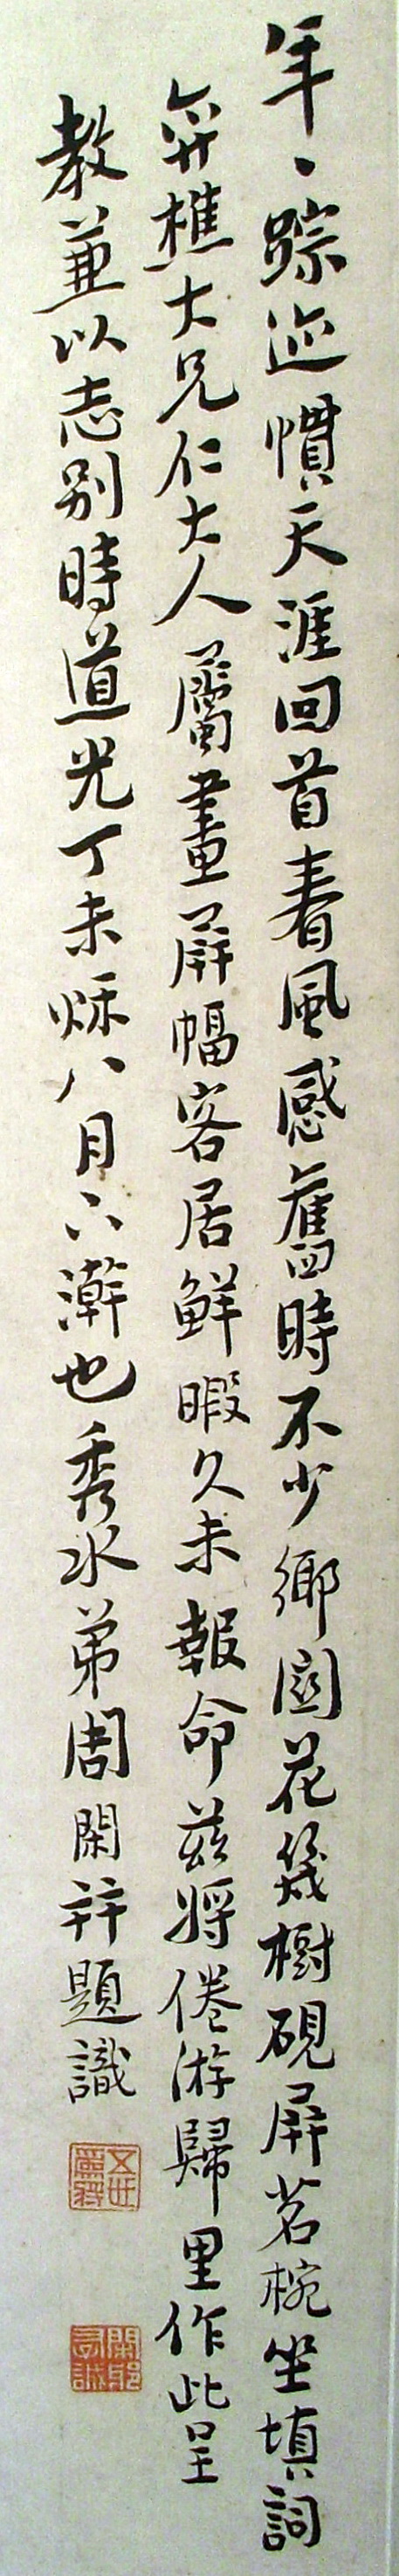 年、踪迹慣天涯回首春風感舊時不少鄉園花幾樹硯屏茗椀坐填詞
弈樵大兄仁大人屬畫屏幅客居鮮暇久未報命茲將倦游歸里作此呈
教並以志別時道光丁未秌八月六澣也秀水弟周閑并題識